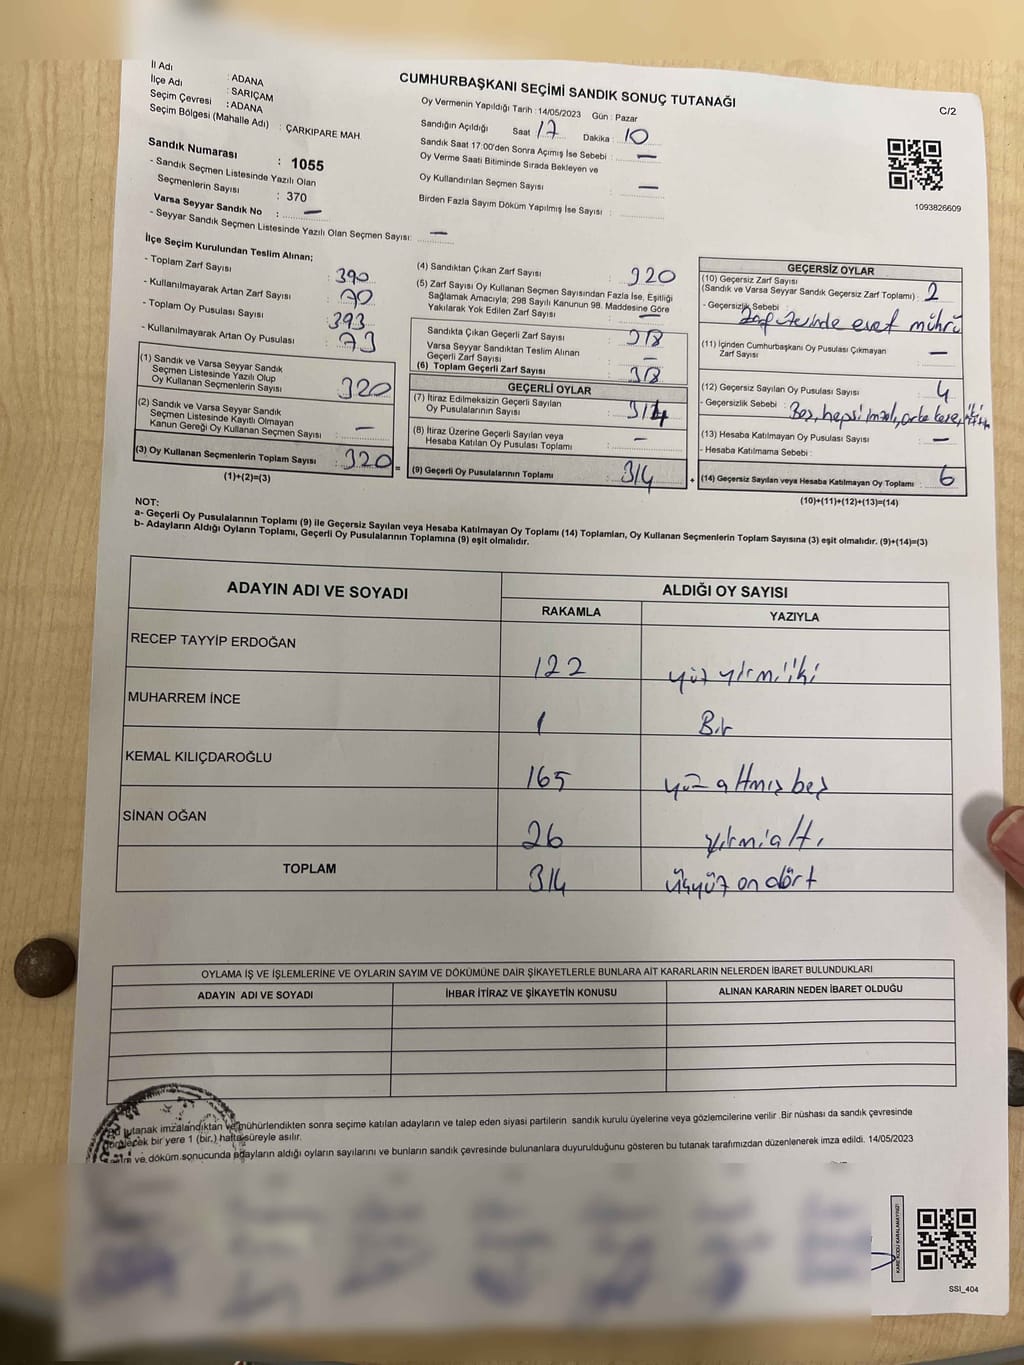 İl Adı : ADANA
İlçe Adı : SARIÇAM
Seçim Çevresi : ADANA
Seçim Bölgesi (Mahalle Adı) : ÇARKIPARE MAH.
CUMHURBAŞKANI SEÇİMİ SANDIK SONUÇ TUTANAĞI
C/2
Oy Vermenin Yapıldığı Tarih : 14/05/2023 Gün : Pazar
Sandığın Açıldığı Saat 17 Dakika : 10
Sandık Saat 17:00'den Sonra Açımış İse Sebebi : —
Oy Verme Saati Bitiminde Sırada Bekleyen ve
Oy Kullandırılan Seçmen Sayısı : —
Birden Fazla Sayım Döküm Yapılmış İse Sayısı :
1093826609
Sandık Numarası : 1055
- Sandık Seçmen Listesinde Yazılı Olan
Seçmenlerin Sayısı : 370
Varsa Seyyar Sandık No : —
- Seyyar Sandık Seçmen Listesinde Yazılı Olan Seçmen Sayısı: —
İlçe Seçim Kurulundan Teslim Alınan;
- Toplam Zarf Sayısı : 390
- Kullanılmayarak Artan Zarf Sayısı : 70
- Toplam Oy Pusulası Sayısı : 393
- Kullanılmayarak Artan Oy Pusulası : 73
(1) Sandık ve Varsa Seyyar Sandık
Seçmen Listesinde Yazılı Olup
Oy Kullanan Seçmenlerin Sayısı : 320
(2) Sandık ve Varsa Seyyar Sandık
Seçmen Listesinde Kayıtlı Olmayan
Kanun Gereği Oy Kullanan Seçmen Sayısı : —
(3) Oy Kullanan Seçmenlerin Toplam Sayısı : 320 =
(1)+(2)=(3)
(4) Sandıktan Çıkan Zarf Sayısı : 320
(5) Zarf Sayısı Oy Kullanan Seçmen Sayısından Fazla İse, Eşitliği
Sağlamak Amacıyla; 298 Sayılı Kanunun 98. Maddesine Göre
Yakılarak Yok Edilen Zarf Sayısı : —
Sandıkta Çıkan Geçerli Zarf Sayısı : 318
Varsa Seyyar Sandıktan Teslim Alınan
Geçerli Zarf Sayısı : —
(6) Toplam Geçerli Zarf Sayısı : 318
GEÇERLİ OYLAR
(7) İtiraz Edilmeksizin Geçerli Sayılan
Oy Pusulalarının Sayısı : 314
(8) İtiraz Üzerine Geçerli Sayılan veya
Hesaba Katılan Oy Pusulası Toplamı : —
(9) Geçerli Oy Pusulalarının Toplamı : 314 +
GEÇERSİZ OYLAR
(10) Geçersiz Zarf Sayısı
(Sandık ve Varsa Seyyar Sandık Geçersiz Zarf Toplamı) : 2
- Geçersizlik Sebebi : Zarf üzerinde evet mührü
(11) İçinden Cumhurbaşkanı Oy Pusulası Çıkmayan
Zarf Sayısı : —
(12) Geçersiz Sayılan Oy Pusulası Sayısı : 4
- Geçersizlik Sebebi : Boş, hepsi
(13) Hesaba Katılmayan Oy Pusulası Sayısı : —
- Hesaba Katılmama Sebebi :
(14) Geçersiz Sayılan veya Hesaba Katılmayan Oy Toplamı : 6
(10)+(11)+(12)+(13)=(14)
NOT:
a- Geçerli Oy Pusulalarının Toplamı (9) ile Geçersiz Sayılan veya Hesaba Katılmayan Oy Toplamı (14) Toplamları, Oy Kullanan Seçmenlerin Toplam Sayısına (3) eşit olmalıdır. (9)+(14)=(3)
b- Adayların Aldığı Oyların Toplamı, Geçerli Oy Pusulalarının Toplamına (9) eşit olmalıdır.
ADAYIN ADI VE SOYADI ALDIĞI OY SAYISI
RAKAMLA YAZIYLA
RECEP TAYYİP ERDOĞAN 122 yüz yirmi iki
MUHARREM İNCE 1 Bir
KEMAL KILIÇDAROĞLU 165 yüz altmış beş
SİNAN OĞAN 26 yirmi altı
TOPLAM 314 üçyüz on dört
OYLAMA İŞ VE İŞLEMLERİNE VE OYLARIN SAYIM VE DÖKÜMÜNE DAİR ŞİKAYETLERLE BUNLARA AİT KARARLARIN NELERDEN İBARET BULUNDUKLARI
ADAYIN ADI VE SOYADI İHBAR İTİRAZ VE ŞİKAYETİN KONUSU ALINAN KARARIN NEDEN İBARET OLDUĞU
tutanak imzalandıktan ve mühürlendikten sonra seçime katılan adayların ve talep eden siyasi partilerin sandık kurulu üyelerine veya gözlemcilerine verilir. Bir nüshası da sandık çevresinde
görülecek bir yere 1 (bir.) hafta süreyle asılır.
ve döküm sonucunda adayların aldığı oyların sayılarını ve bunların sandık çevresinde bulunanlara duyurulduğunu gösteren bu tutanak tarafımızdan düzenlenerek imza edildi. 14/05/2023
KARE KODU KARALAMAYINIZ!
SSI_404